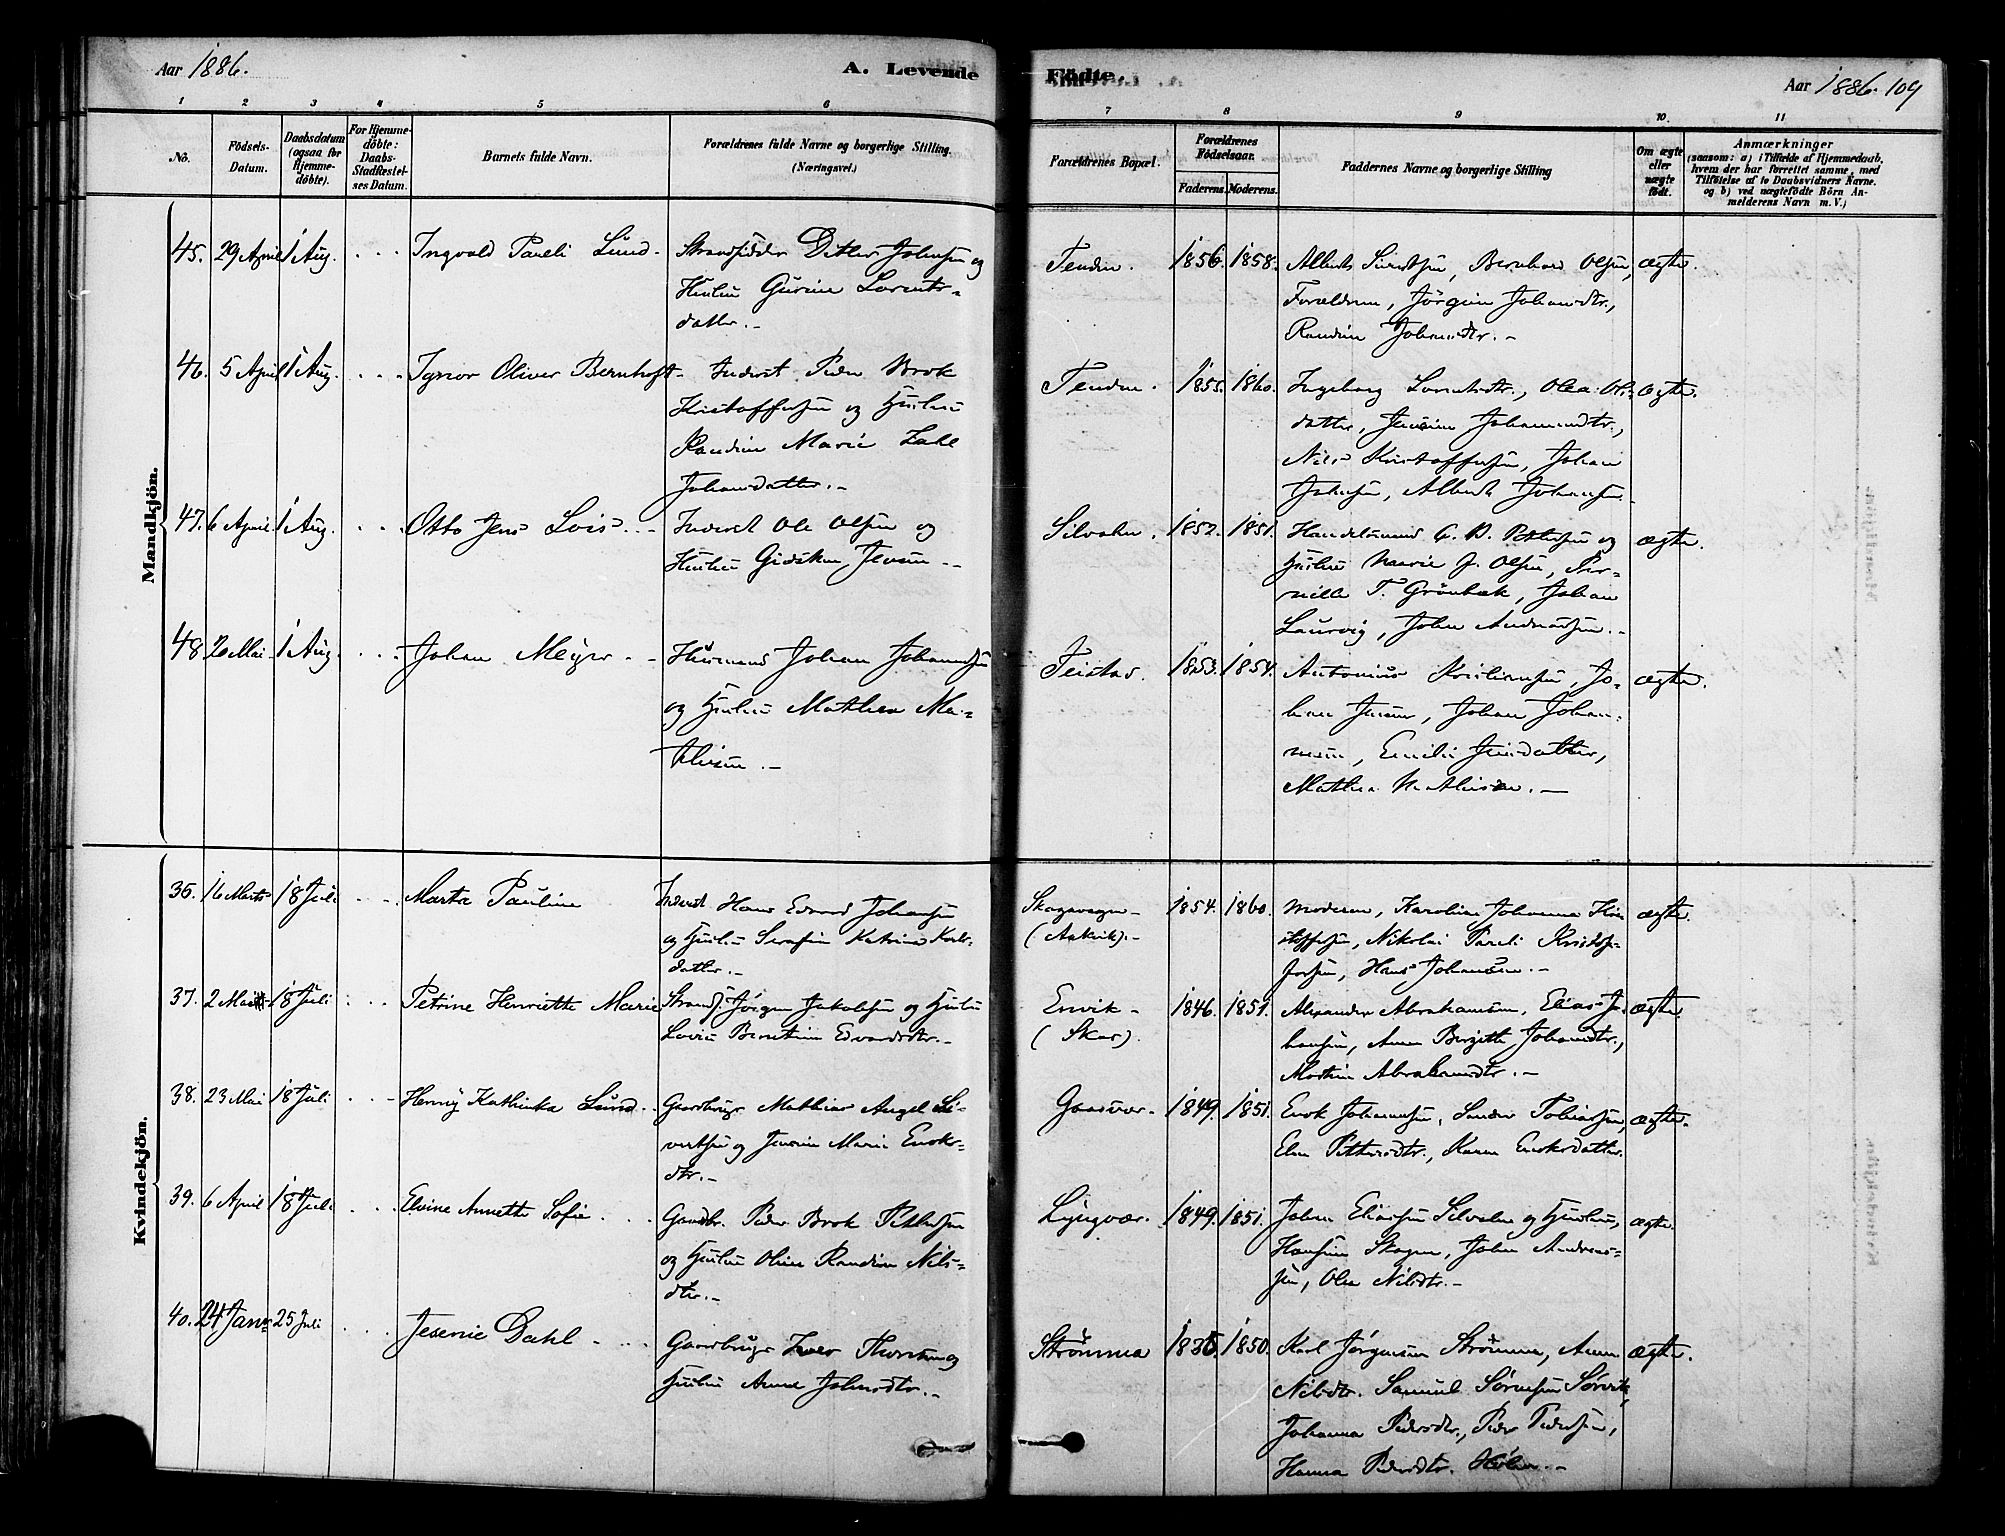 Aar 1886.
A. Levende
Födte.
Aar 1886. 109
1 2 3 4 5 6 7 8 9 10 11
No.
Födsels-Datum.
Daabsdatum (ogsaa for Hjemme-döbte).
For Hjemme-döbte: Daabs-Stadfæstel-ses Datum.
Barnets fulde Navn.
Forældrenes fulde Navne og borgerlige Stilling.
(Næringsvei.)
Forældrenes Bopæl.
Forældrenes Födselsaar.
Faderens. Moderens.
Faddernes Navne og borgerlige Stilling
Om ægte eller uægte födt.
Anmærkninger
(saasom: a) i Tilfælde af Hjemmedaab,
hvem der har forrettet samme, med
Tilföielse af to Daabsvidners Navne.
og b) ved uægtefödte Börn An-
melderens Navn m. V.)
Mandkjön.
45. 29 April 1 Aug. Ingvald Pauli Lund. Strandsidder Ditlev Johnsen og
Hustru Gurine Lorents-
datter.
Tendin. 1856. 1858. Albert Sivertsen, Bernhard Olsen, ægte.
Forældrene, Jörgine Johansdtr.,
Randine Johansdtr.
46. 5 April 1 Aug. Ignor Oliver Bernhoft. Inderst Peder Brok
Kristoffersen og Hustru
Randine Marie Zahl
Johansdatter.
Tendin. 1855. 1860. Ingeborg Lorentsdtr., Olea Ols- ægte.
datter, Johannesdtr.,
Nils Kristoffersen, Johan
Johnsen, Johansen.
47. 6 April 1 Aug. Otto Jens Lois. Inderst Ole Olsen og
Hustru Gidsken Jensen.
Silvalen. 1852. 1851. Handelsmand C. D. Pettersen og ægte.
Hustru Marie J. Olsen, Per-
nille T. Grönbæk, Johan
Laurvig, John Andreassen.
48. 26 Mai 1 Aug. Johan Meyer. Husmand Johan Johannesen
og Hustru Mathea Ma-
thisen.
Teistad. 1853. 1854. Antonius Kristiansen, Jo- ægte.
han Jensen, Johan Johan-
nesen, Emilie Jensdatter,
Mathea Mathisen.
Kvindekjön.
36. 16 Marts 18 Juli Marta Pauline Inderst Hans Edvard Johansen
og Hustru Serafine Katrine Karls-
datter.
Skagavaagen
(Aakvik). 1854. 1860. Moderen, Karoline Johanna Kri- ægte.
stoffersen, Nikolai Pareli Kristof-
fersen, Hans Johansen.
37. 2 Marts 18 Juli Petrine Henriette Marie Strands. Jörgen Jakobsen og Hustru
Lovise Berntine Edvardsdtr.
Envik
(Skar). 1846. 1851. Alexander Abrahamsen, Elias Jo- ægte.
hansen, Anne Birgitte Johansdtr.,
Martine Abrahamsdtr.
38. 23 Mai 18 Juli Henny Kathinka Lund. Gaardbruger Mathias Angel Si-
vertsen og Jensine Marie Enoks-
dtr.
Gaasvær. 1849. 1851. Enok Johannesen, Sander Tobiassen, ægte.
Elen Pettersdtr., Karen Enoksdatter.
39. 6 April 18 Juli Elvine Annette Sofie. Gaardbr. Peder Brok Pettersen
og Hustru Oline Randine Nils-
dtr.
Lyngvær. 1849. 1851. Johan Eliassen Silvalen og Hustru, ægte.
Hansine Skagen, John Andreas-
sen, Olea Nilsdtr.
40. 24 Janr 25 Juli Jesenie Dahl Gaardbruger Iver Thorsen og
Hustru Anne Johnsdtr.
Strömma 1835. 1850. Karl Jörgensen Strömma, Anne ægte.
Nilsdtr. Samuel Sörensen Sörvik,
Johanna Pedersdtr., Peder Pedersen,
Hanna Pedersdtr. Holmen.